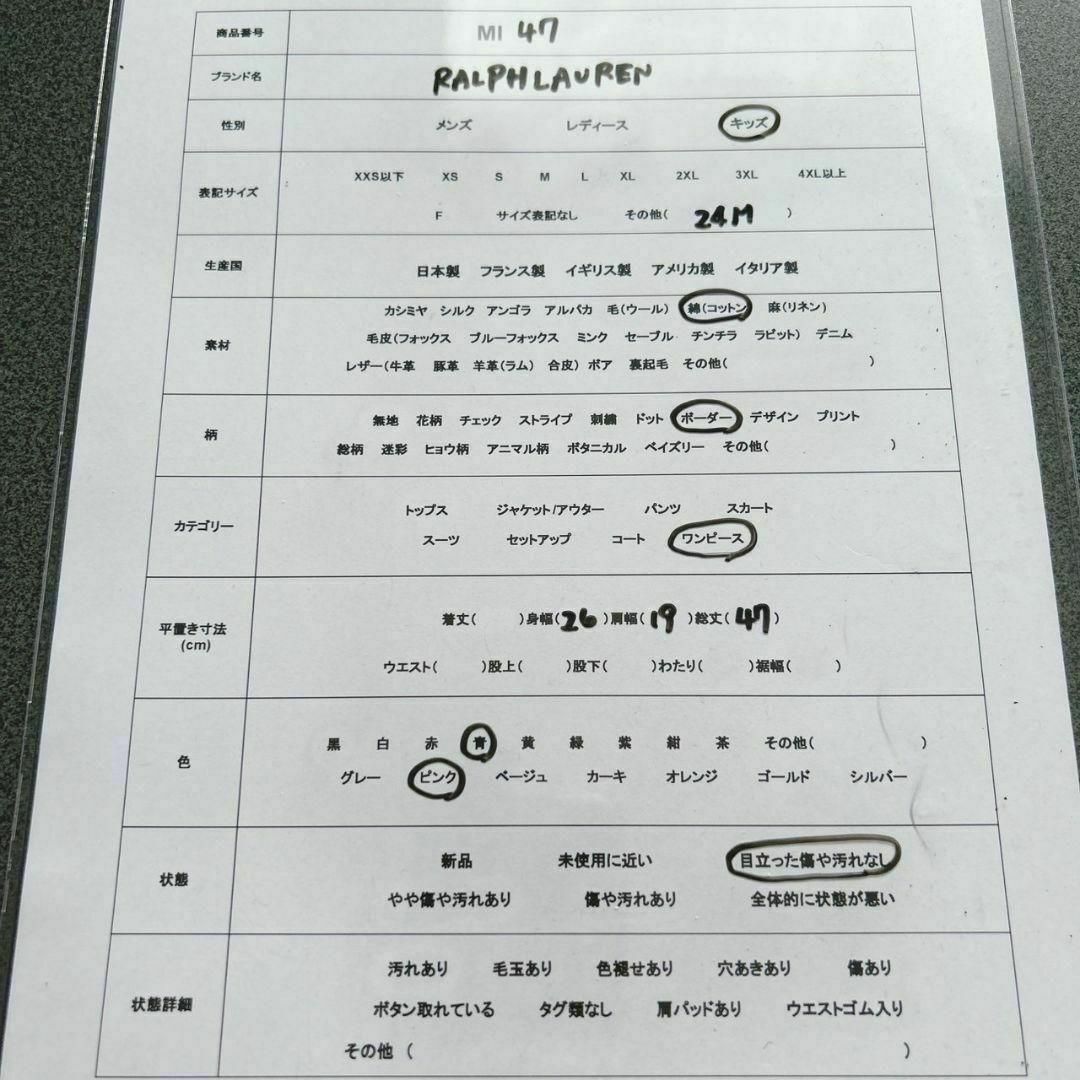 商品番号 MI 47
ブランド名 RALPH LAUREN
性別 メンズ レディース キッズ
表記サイズ XXS以下 XS S M L XL 2XL 3XL 4XL以上
F サイズ表記なし その他( 24M )
生産国 日本製 フランス製 イギリス製 アメリカ製 イタリア製
素材 カシミヤ シルク アンゴラ アルパカ 毛(ウール) 綿(コットン 麻(リネン)
毛皮(フォックス ブルーフォックス ミンク セーブル チンチラ ラビット) デニム
レザー(牛革 豚革 羊革(ラム) 合皮) ボア 裏起毛 その他( )
柄 無地 花柄 チェック ストライプ 刺繍 ドット ボーダー デザイン プリント
総柄 迷彩 ヒョウ柄 アニマル柄 ボタニカル ペイズリー その他( )
カテゴリー トップス ジャケット/アウター パンツ スカート
スーツ セットアップ コート ワンピース
平置き寸法 (cm) 着丈( )身幅( 26 )肩幅( 19 )総丈( 47 )
ウエスト( )股上( )股下( )わたり( )裾幅( )
色 黒 白 赤 青 黄 緑 紫 紺 茶 その他( )
グレー ピンク ベージュ カーキ オレンジ ゴールド シルバー
状態 新品 未使用に近い 目立った傷や汚れなし
やや傷や汚れあり 傷や汚れあり 全体的に状態が悪い
状態詳細 汚れあり 毛玉あり 色褪せあり 穴あきあり 傷あり
ボタン取れている タグ類なし 肩パッドあり ウエストゴム入り
その他 ( )